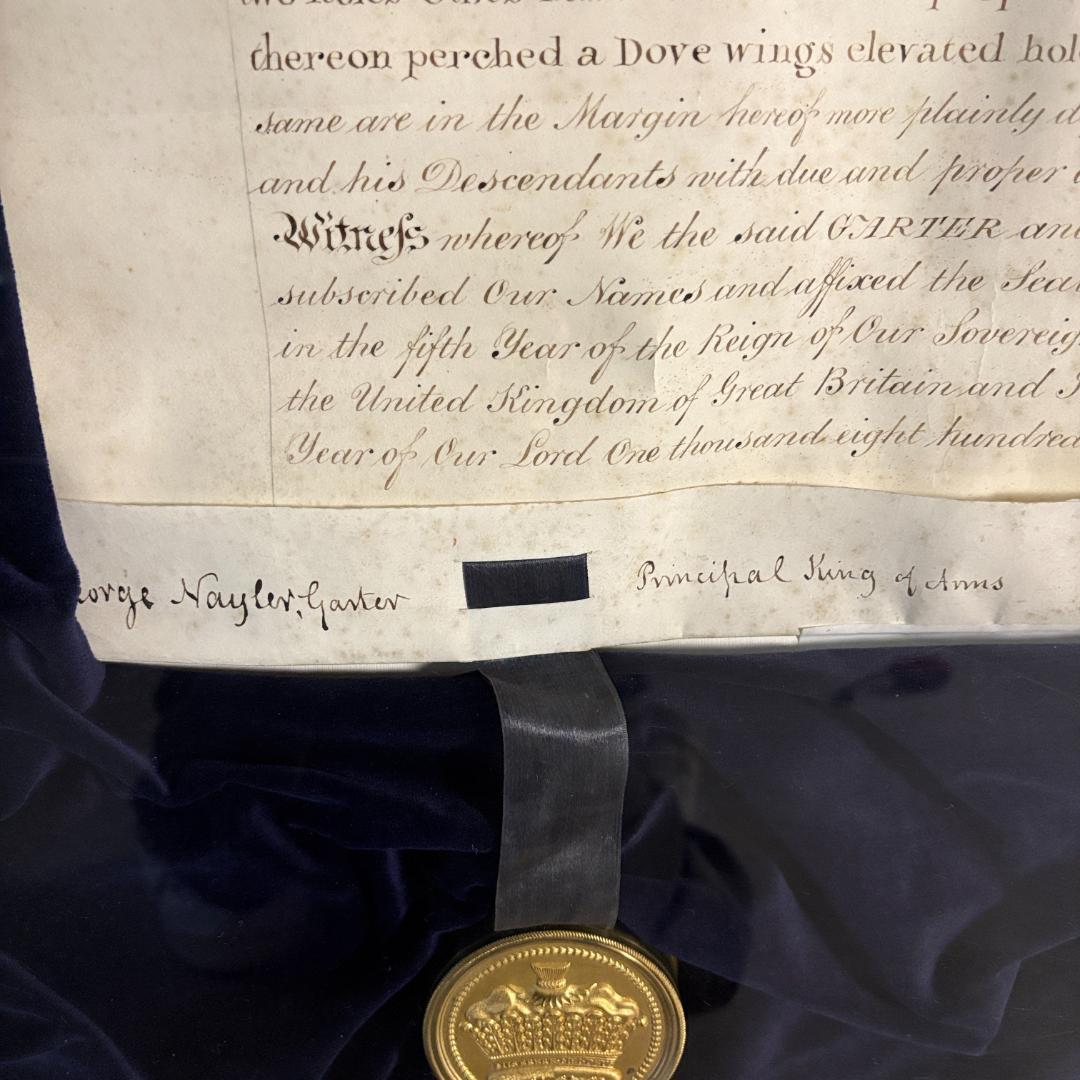 thereon perched a Dove wings elevated hol
same are in the Margin hereof more plainly d
and his Descendants with due and proper
Witneſs whereof We the said GARTER and
subscribed Our Names and affixed the Sea
in the fifth Year of the Reign of Our Sovereig
the United Kingdom of Great Britain and I
Year of Our Lord One thousand eight hundred
eorge Nayler, Garter Principal King of Arms